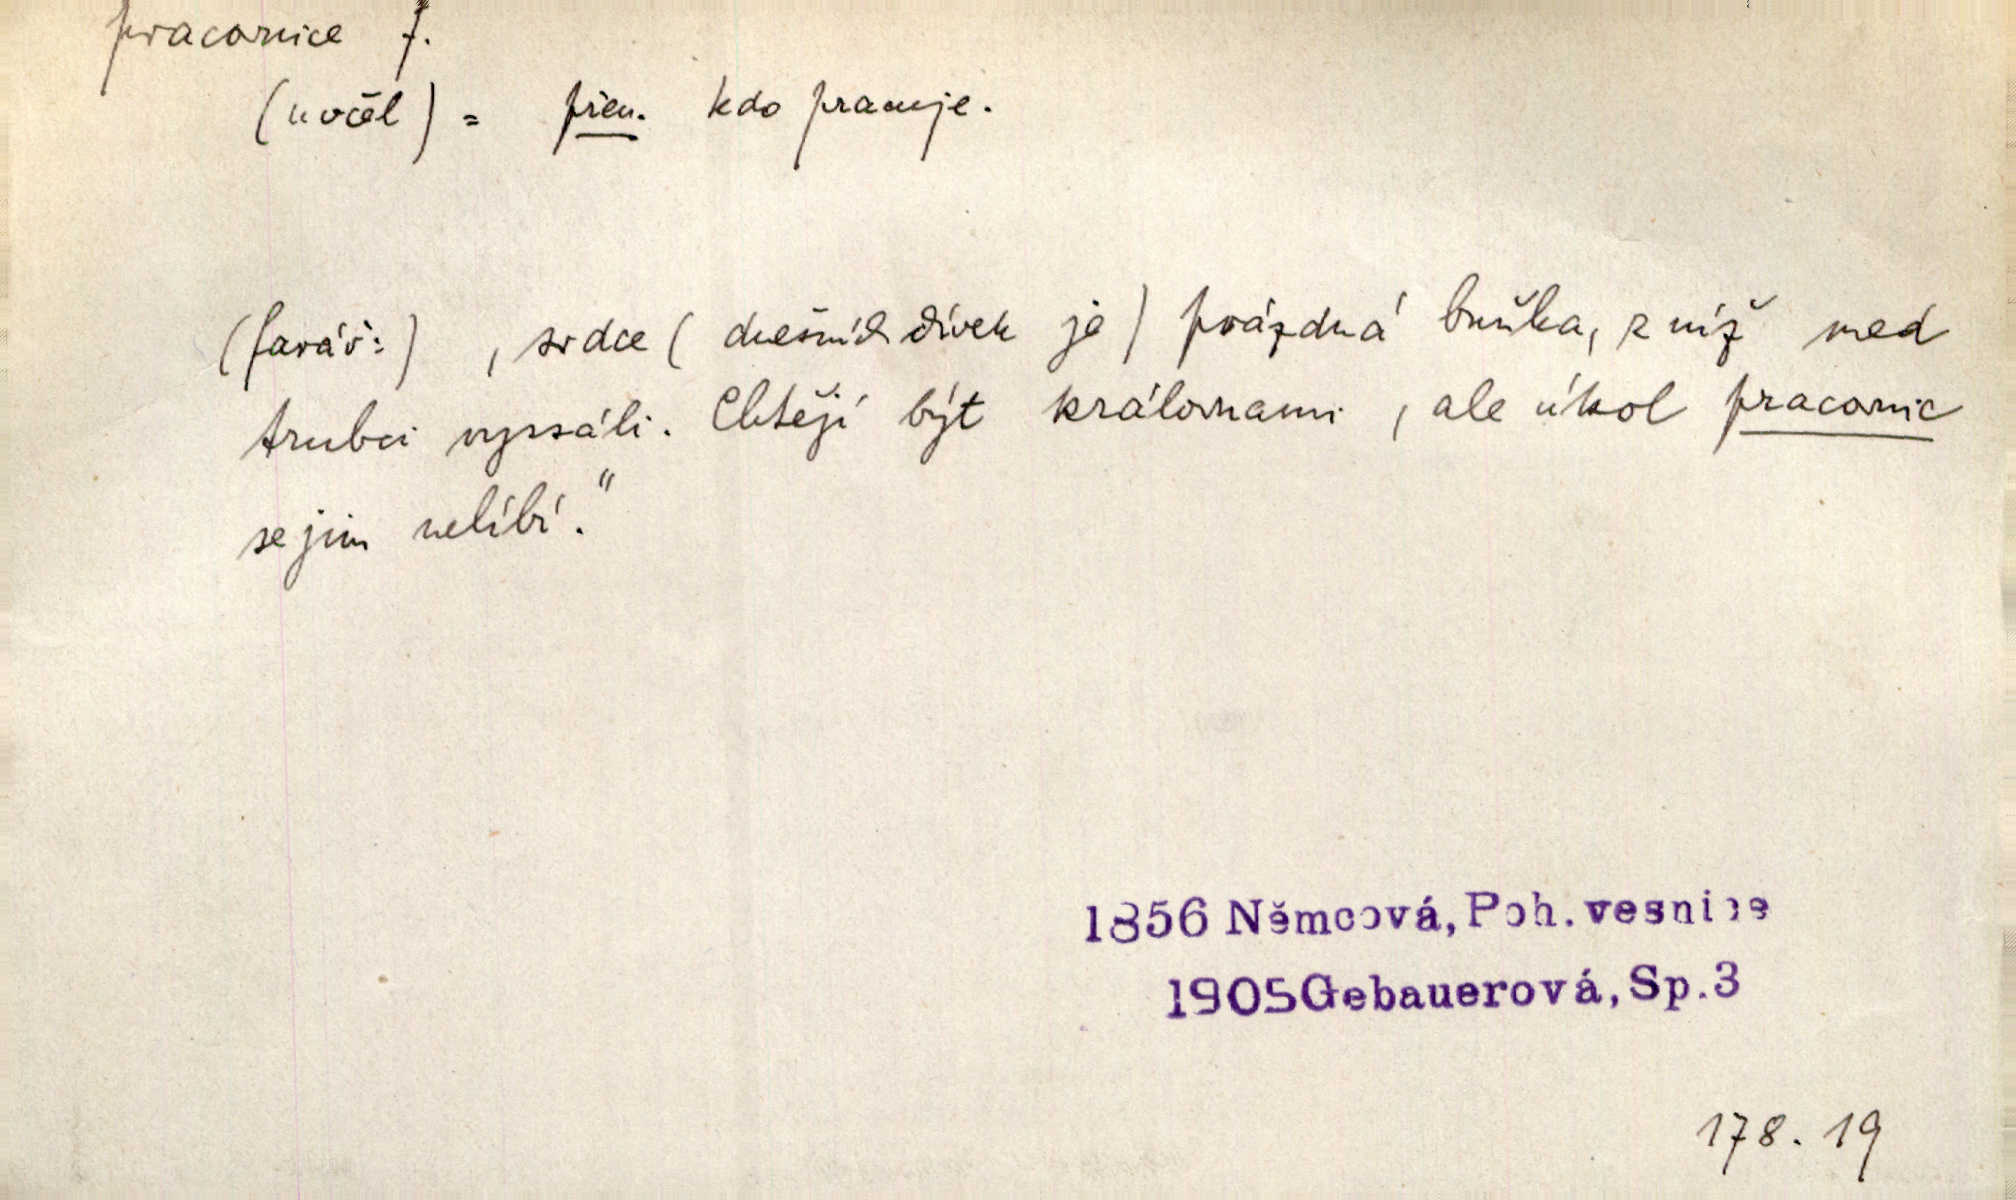 pracovnice f.
(u včel) = přen. kdo pracuje.
(farář:) , srdce (dnešních dívek je) prázdná buňka, z níž med
trubci vyssáli. Chtějí být královnami, ale úkol pracovnic
se jim nelíbí."
1856 Němcová, Poh. vesnice
1905 Gebauerová, Sp. 3
178. 19